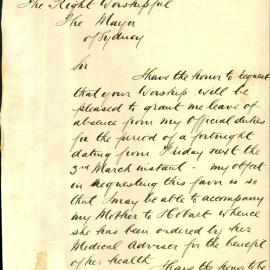 The Right Worshipful
The Mayor
of Sydney
Sir
I have the honor to request
that your Worship will be
pleased to grant me leave of
absence from my Official duties
for the period of a fortnight
dating from Friday next the
3rd March instant - my object
in requesting this favor is so
that I may be able to accompany
my Mother to Hobart whence
she has been ordered by her
Medical Adviser for the benefit
of her health
I have the honor to be